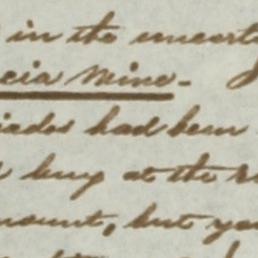 in the uncert
cia Mine - 
cades had been
buy at the r
mount, but yo